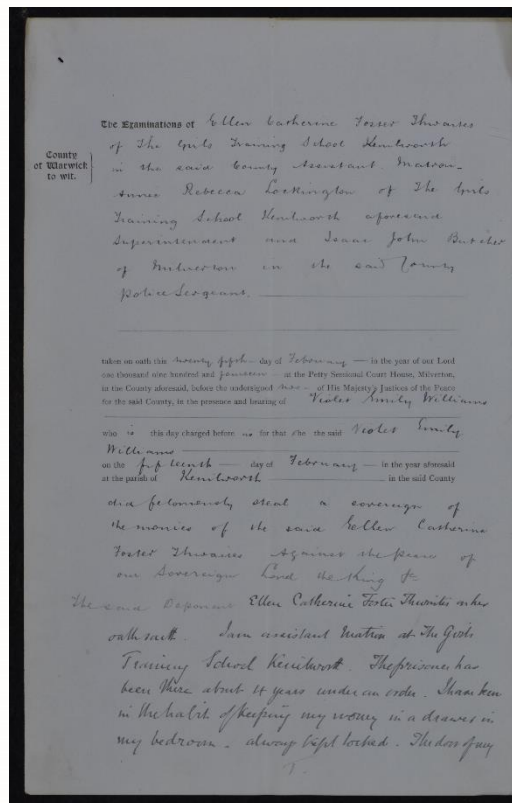 The Examinations of Ellen Catherine Foster Thwaites
of The Girls Training School Kenilworth
County
of Warwick
to wit.
in the said County Assistant Matron
Annie Rebecca Lockington of The Girls
Training School Kenilworth aforesaid
Superintendent and Isaac John Butcher
of Milverton in the said County
Police Sergeant.
taken on oath this twenty fifth day of February in the year of our Lord
one thousand nine hundred and fourteen at the Petty Sessional Court House, Milverton,
in the County aforesaid, before the undersigned two of His Majesty's Justices of the Peace
for the said County, in the presence and hearing of Violet Emily Williams
who is this day charged before us for that she the said Violet Emily
Williams
on the fifteenth day of February in the year aforesaid
at the parish of Kenilworth in the said County
did feloniously steal a sovereign of
the monies of the said Ellen Catherine
Foster Thwaites Against the peace of
our Sovereign Lord the King &c
The said Deponent Ellen Catherine Foster Thwaites on her
oath saith. I am assistant Matron at The Girls
Training School Kenilworth. The prisoner has
been there about 4 years under an order. I have been
in the habit of keeping my money in a drawer in
my bedroom. always kept locked. The door of my